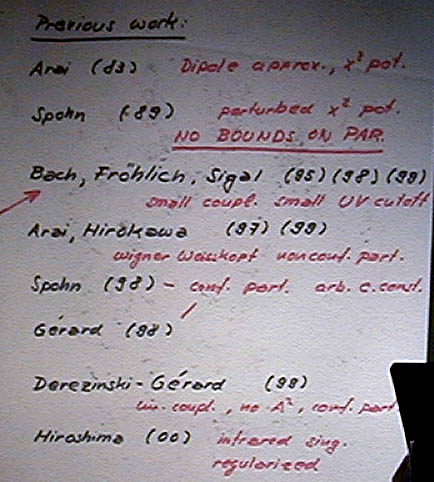 Previous work:
Arai (83) Dipole approx., x² pot.
Spohn (89) perturbed x² pot.
NO BOUNDS ON PAR.
Bach, Fröhlich, Sigal (95) (98) (99)
small coupl. small UV cutoff
Arai, Hirokawa (97) (99)
wigner Weisskopf nonconf. part.
Spohn (98) - conf. part. arb. c. const.
Gérard (98)
Derezinski - Gérard (99)
lin. coupl., no A², conf. part.
Hiroshima (00) infrared sing.
regularized